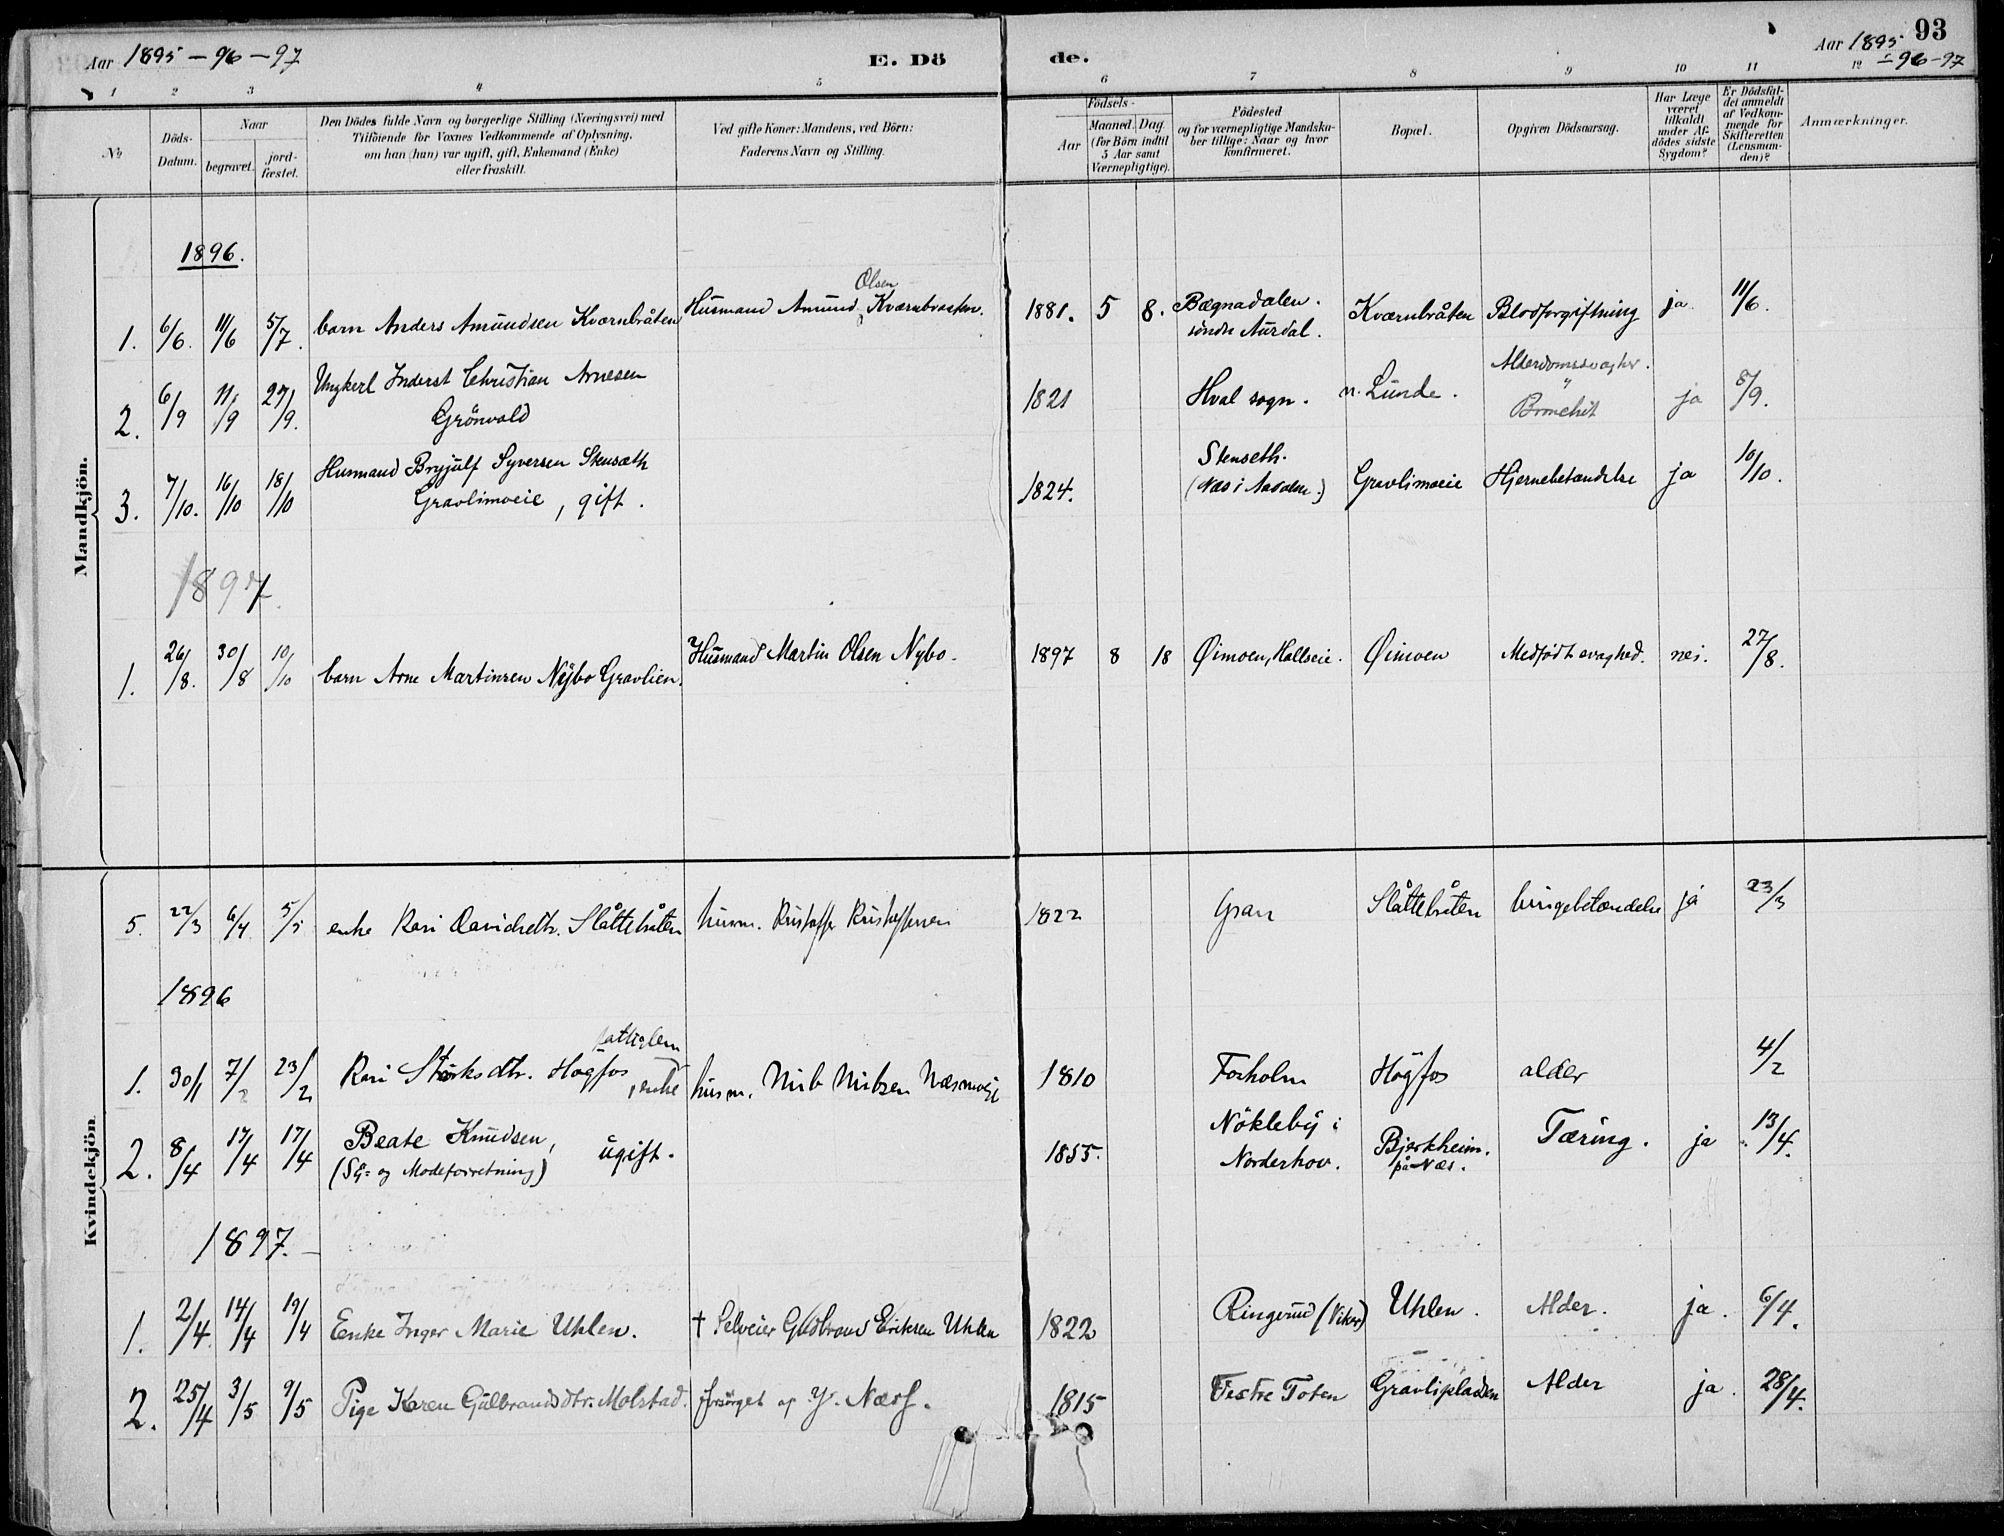 Aar 1895 - 96 - 97
E. Dö
de.
Aar 1895
- 96 - 97
93
1 2 3 4 5 6 7 8 9 10 11 12
No
Döds-
Datum.
Naar
begravet.
jord-
fæstet.
Den Dödes fulde Navn og borgerlige Stilling (Næringsvei) med
Tilföiende for Voxnes Vedkommende af Oplysning,
om han (hun) var ugift, gift, Enkemand (Enke)
eller fraskilt.
Ved gifte Koner: Mandens, ved Börn:
Faderens Navn og Stilling.
Födsels-
Aar
Maaned. Dag.
(for Börn indtil
5 Aar samt
Værnepligtige).
Födested
og for værnepligtige Mandska-
ber tillige: Naar og hvor
konfirmeret.
Bopæl.
Opgiven Dödsaarsag.
Har Læge
været
tilkaldt
under Af-
dödes sidste
Sygdom?
Er Dödsfal-
det anmeldt
af Vedkom-
mende for
Skifteretten
(Lensman-
den)?
Anmærkninger.
Mandkjön.
1896.
1. 6/6. 11/6 5/7. barn Anders Amundsen Kværnbråten Husmand Amund Olsen Kværnbraaten. 1881. 5 8. Bægnadalen. Kværnbråten Blodforgiftning ja 11/6.
söndre Aurdal.
2. 6/9 11/9 27/9. Ungkerl Inderst Christian Arnesen 1821 Hval sogn. n. Lunde. Alderdomssvaghed. ja 8/9.
Grönvold
" Bronchit
3. 7/10. 16/10 18/10 Husmand Bryjulf Syversen Stensæth 1824. Stenseth. Gravlimoeie Hjernebetændelse ja 10/10.
Gravlimoeie, gift.
(Næs i Aadalen.)
1897.
1. 26/8. 30/8 10/10 barn Arne Martinsen Nybo Gravlien. Husmand Martin Olsen Nybo. 1897 8 18 Øimoen, Hallseie. Øimoen Medfødt svaghed. nei. 27/8.
Kvindekjön
5. 22/3 6/4 5/5 enke Kari Davidsdtr. Slåttebråten husm. Kristoffer Kristoffersen 1822 Gran Slåttebråten lungebetændelse ja 23/3
1896
1. 30/1 7/2 23/2 Kari Störksdtr. Högfos fattiglem, enke husm. Nils Nielsen Næsmoeje 1810 Foxholm Högfos alder 4/2
2. 8/4 17/4 17/4 Beate Knudsen, ugift. 1855. Nökleby i Bjerkheim. Tæring. ja 13/4.
(Sy- og Modeforretning) Norderhov. på Næs.
1897.
1. 2/4 14/4 19/4 Enke Inger Marie Uhlen. † Selveier Gulbrand Eriksen Uhlen 1822 Ringerud (Viker) Uhlen. Alder. ja. 6/4.
2. 25/4 3/5 9/5 Pige Karen Gulbrandsdtr. Molstad. forsörget af Y. Næss. 1815 Vestre Toten Gravlipladsen Alder ja. 28/4.